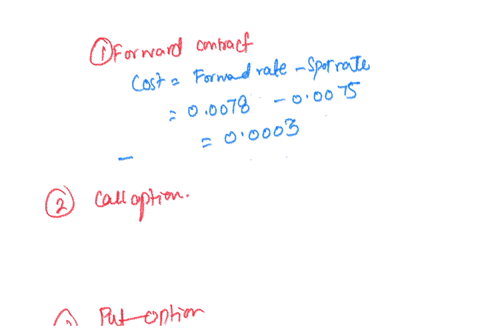 ① Forward contract
Cost = Forward rate - Spot rate
= 0.0078 - 0.0075
= 0.0003
② Call option.
③ Put option